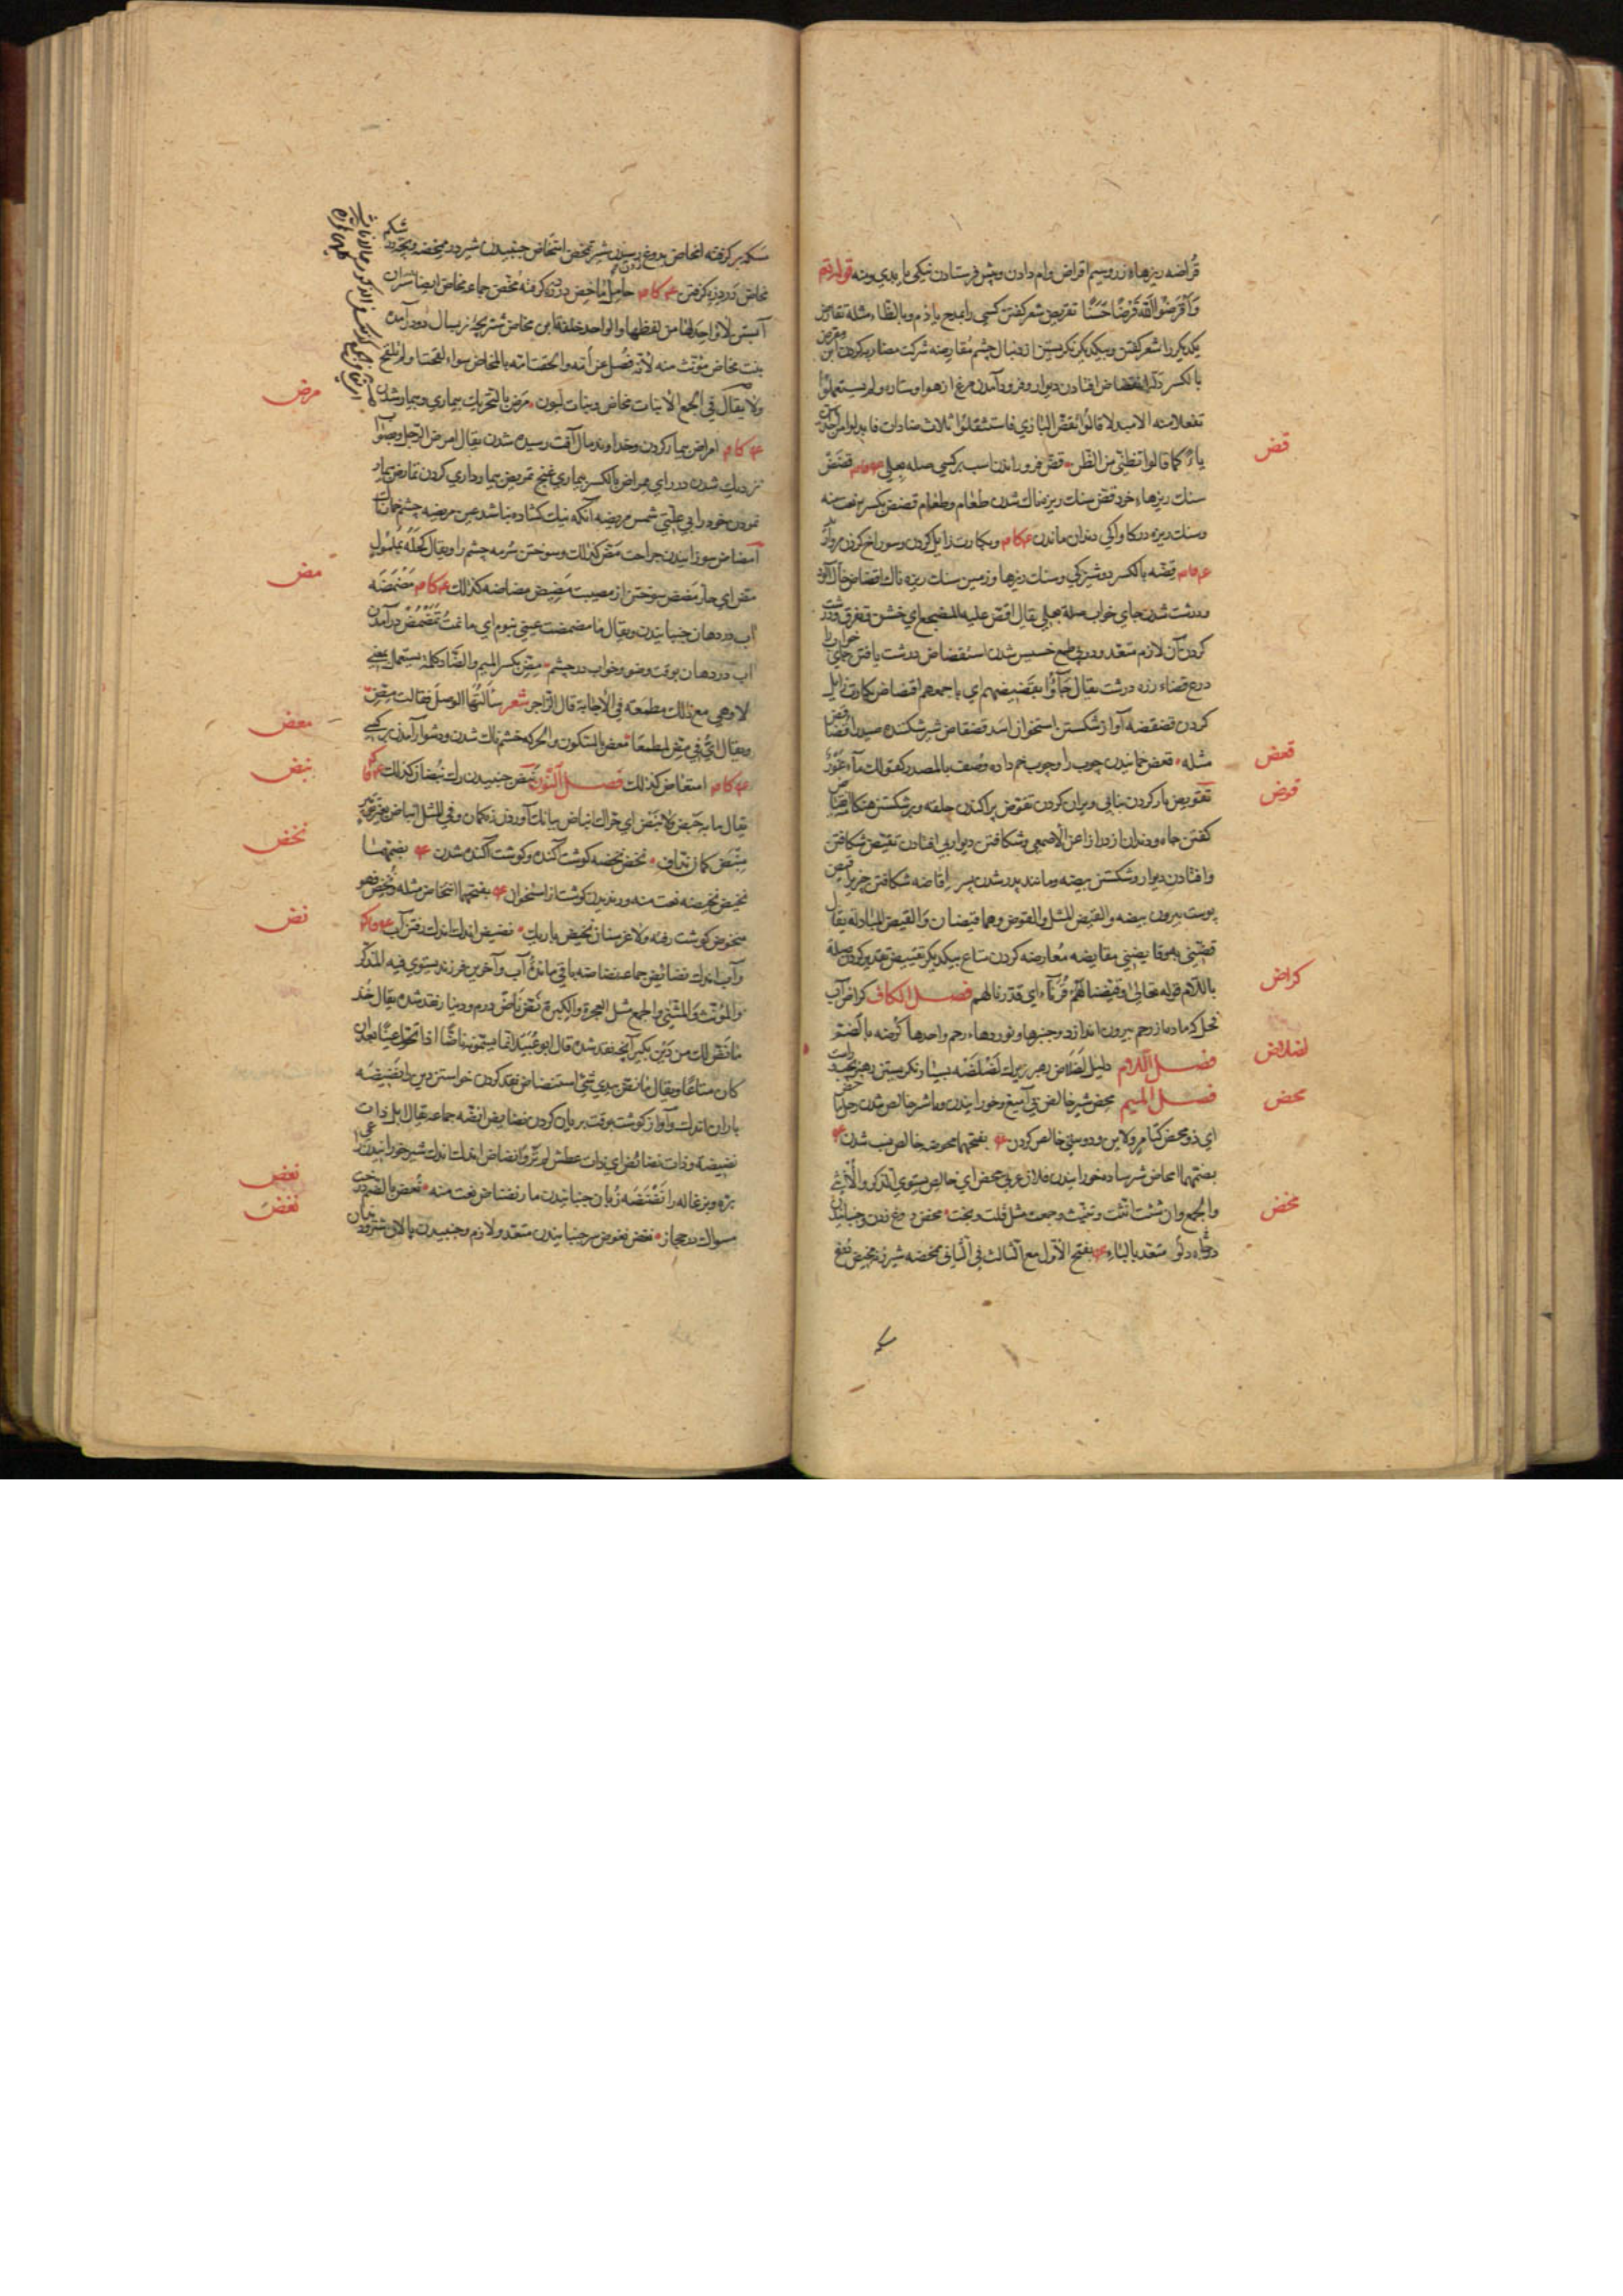 قُراضه ریزهاء زر وسیم اقراض وام دادن وپیش فرستادن نیکی یا بدی ومنه قوله تع
وَأَقْرَضُوا اللّٰهَ قَرْضًا حَسَنًا تقریض شعر گفتن کسی را بمدح یا ذم وبالظاء مثله تقارض
یکدیگر را شعر گفتن وبیکدیگر نگریستن از دنبال چشم مُقارضه شرکت مضاربه کردن
بالکسر انقضاض افتادن دیوار وفرود آمدن مرغ از هوا وستاره ولم یستعملوا
تفعلا منه الا مبدلا قالوا تقضّی البازی فاستثقلوا ثلاث ضادات فابدلوا من
یاءً کما قالوا تظنّی من الظنّ قضّ فرود راندن اسب بر کسی صله بعلی قضض
قض
سنک ریزهاء خرد قضض سنک ریزه ناک شدن طعام وطعام قضض بکسر نعت منه
وسنک ریزه در کاواکی دندان ماندن وبکارت زایل کردن وسوراخ کردن مروارید
قضّه بالکسر دوشیزگی وسنک ریزها وزمین سنک ریزه ناک اقضاض خاک آلود
ودرشت شدن جای خواب صلة بعلی یقال اقضّ علیه المضجع ای خشن وتترّب ودرشت
کردن آن لازم متعد ودر پی طمع خسیس شدن استقضاض درشت یافتن جای خواب را
درع قضاء زره درشت یقال جَاؤُا بقَضیضهم ای باجمعهم اقتضاض بکارت زایل
کردن قضقضه آواز شکستن استخوان اسد قضقاض شیر شکننده صید را
مثله قعض خمانیدن چوب را وچوب خم داده وصف بالمصدر کقولک ماء غَوْر
قعض
تقویض باز کردن بنا بی ویران کردن تقوّض پراکندن حلقه وبر شکستن هنگام
قوض
کفتن چاه ودندان از درازا عن الاصمعی وشکافتن دیوار بی افتادن تقیّض شکافتن
وافتادن دیوار وشکستن بیضه ومانند پدر شدن پسر اقاضه شکافتن چیز را
پوست بیرون بیضه والقیض المثل والعوض وهما قیضان والقیض المبادلة یقال
قضنی وهو قایضنی مقایضه معارضه کردن متاع بیکدیکر تقییض تقدیر کردن صلة
باللام قوله تعالی وقیّضنا لهم قُرَناء ای قدرنا لهم فصل الکاف کراض آب
کراض
نحل که ماده از رحم بیرون اندازد وجنبرها ونوردهاء رحم واحدها کُرضه بالضم
فصل اللام دلیل لَضلاض رهبر زیرک لَضْلَضَه بسیار نکریستن رهبر بچپ وراست
لضلاض
فصل المیم محض شیر خالص بی آمیغ وخورانیدن وماشر خالص شدن رجل ماحض
محض
ای ذو محض کتامر ولابن ودوستی خالص کردن بفتحهما محوضه خالص نسب شدن
بضمهما امحاض شیر ساده خورانیدن فلان عربی محض ای خالص یستوی المذکر والانثی
والجمع وان شئت انّثت وثنّیت وجمعت مثل قلب وبحت مخض دوغ زدن وجنبانیدن
مخض
دوغ ودلو متعد بالباء بفتح الاول مع الثالث فی الثانی مخضه شیر زنه مخیض دوغ
مسکه
مسکه بر گرفته امخاض بدوغ رسیدن شیر تمخّض امتخاض جنبیدن شیر در ممخضه وبچه در شکم
مخاض درد زه گرفتن حامل ماخض درد زه گرفته مُخّض جماعه مخاض ایضا شتران
آبستن لا واحد لها من لفظها والواحد خلفة ابن مخاض شتر بچه نر بسال دوم در آمده
بنت مخاض مؤنث منه لانه فُصل عن امّه والحقت امّه بالمخاض سواء لقحت او لم تلقح
ولا یقال فی الجمع الا بنات مخاض وبنات لبون مرض بالتحریک بیماری وبیمار شدن
مرض
امراض بیمار کردن وخداوند مال آفت رسیده شدن یقال امرض الرجل
نزدیک شدن در رای مراض بالکسر بیماری غنج تمریض بیمار داری کردن تمارض بیمار
نمودن خود را بی علتی شمس مریضه آنکه نیک گشاده نباشد عین مریضه چشم
امضاض سوزانیدن جراحت مضّ کذلک وسوختن سرمه چشم را ویقال کحله بملمول
مض
مضّ ای حارّ مضض سوختن از مصیبت مضیض مضاضه کذلک مضمضه
آب در دهان جنبانیدن ویقال ما مضمضت عینی بنوم ای ما نمت تمضمض در آمدن
آب در دهان بوقت وضو وخواب در چشم مِضّ بکسر المیم والضاد کلمة یستعمل بمعنی
لا وهی مع ذلک مطمعة فی الاجابة قال الراجز شعر سألتُها الوصل فقالت مِضّ
ویقال انّ فی مضّ لمطمعا معض بالسکون والحرکه خشم ناک شدن ودشوار آمدن بر کسی
معض
امتعاض کذلک فصل النون نبض جنبیدن رک نبضان کذلک
نبض
یقال ما به حَبَض ولا نَبَض ای حراک انباض ببانک آوردن زه کمان وفی المثل انباض بغیر
منبض کمان نداف نحض نحضه گوشت آکنده وگوشت آکنده شدن بضمهما
نحض
نحیض نحیضه نعت منه ورندیدن گوشت از استخوان بفتحهما انتحاض مثله نُحِض فهو
منحوض گوشت رفته ولاغر سنان نحیض باریک نضیض اندک اندک رفتن آب
نض
وآب اندک نضائض جماعه نضاضه باقی مانده آب وآخرین فرزند یستوی فیه المذکر
والمؤنث والمثنی والجمع مثل العجزة والکبرة نضّ ناضّ درم ودینار نقد شده یقال خذ
ما نضّ لک من دَیْن بکیر آنچه نقد شده قال ابو عبید انما یسمونه ناضّا اذا تحول عینا بعد ان
کان متاعا ویقال ما نضّ بیدی شیء استنضاض نقد کردن خواستن دین را نضیضه
باران اندک وآواز گوشت بوقت بریان کردن نضایض انضّه جماعه یقال ابل ذات
نضیضة وذات نضائض ای ذات عطش لم تروَ انضاض اندک اندک شیر خورانیدن
بره وبزغاله را نَضْنَضَه زبان جنبانیدن مار نضناض نعت منه نُعض بالضم درخت
نعض
مسواک در حجاز نغض نغوض سر جنبانیدن متعد ولازم وجنبیدن پالان شتر ودندان
نغض